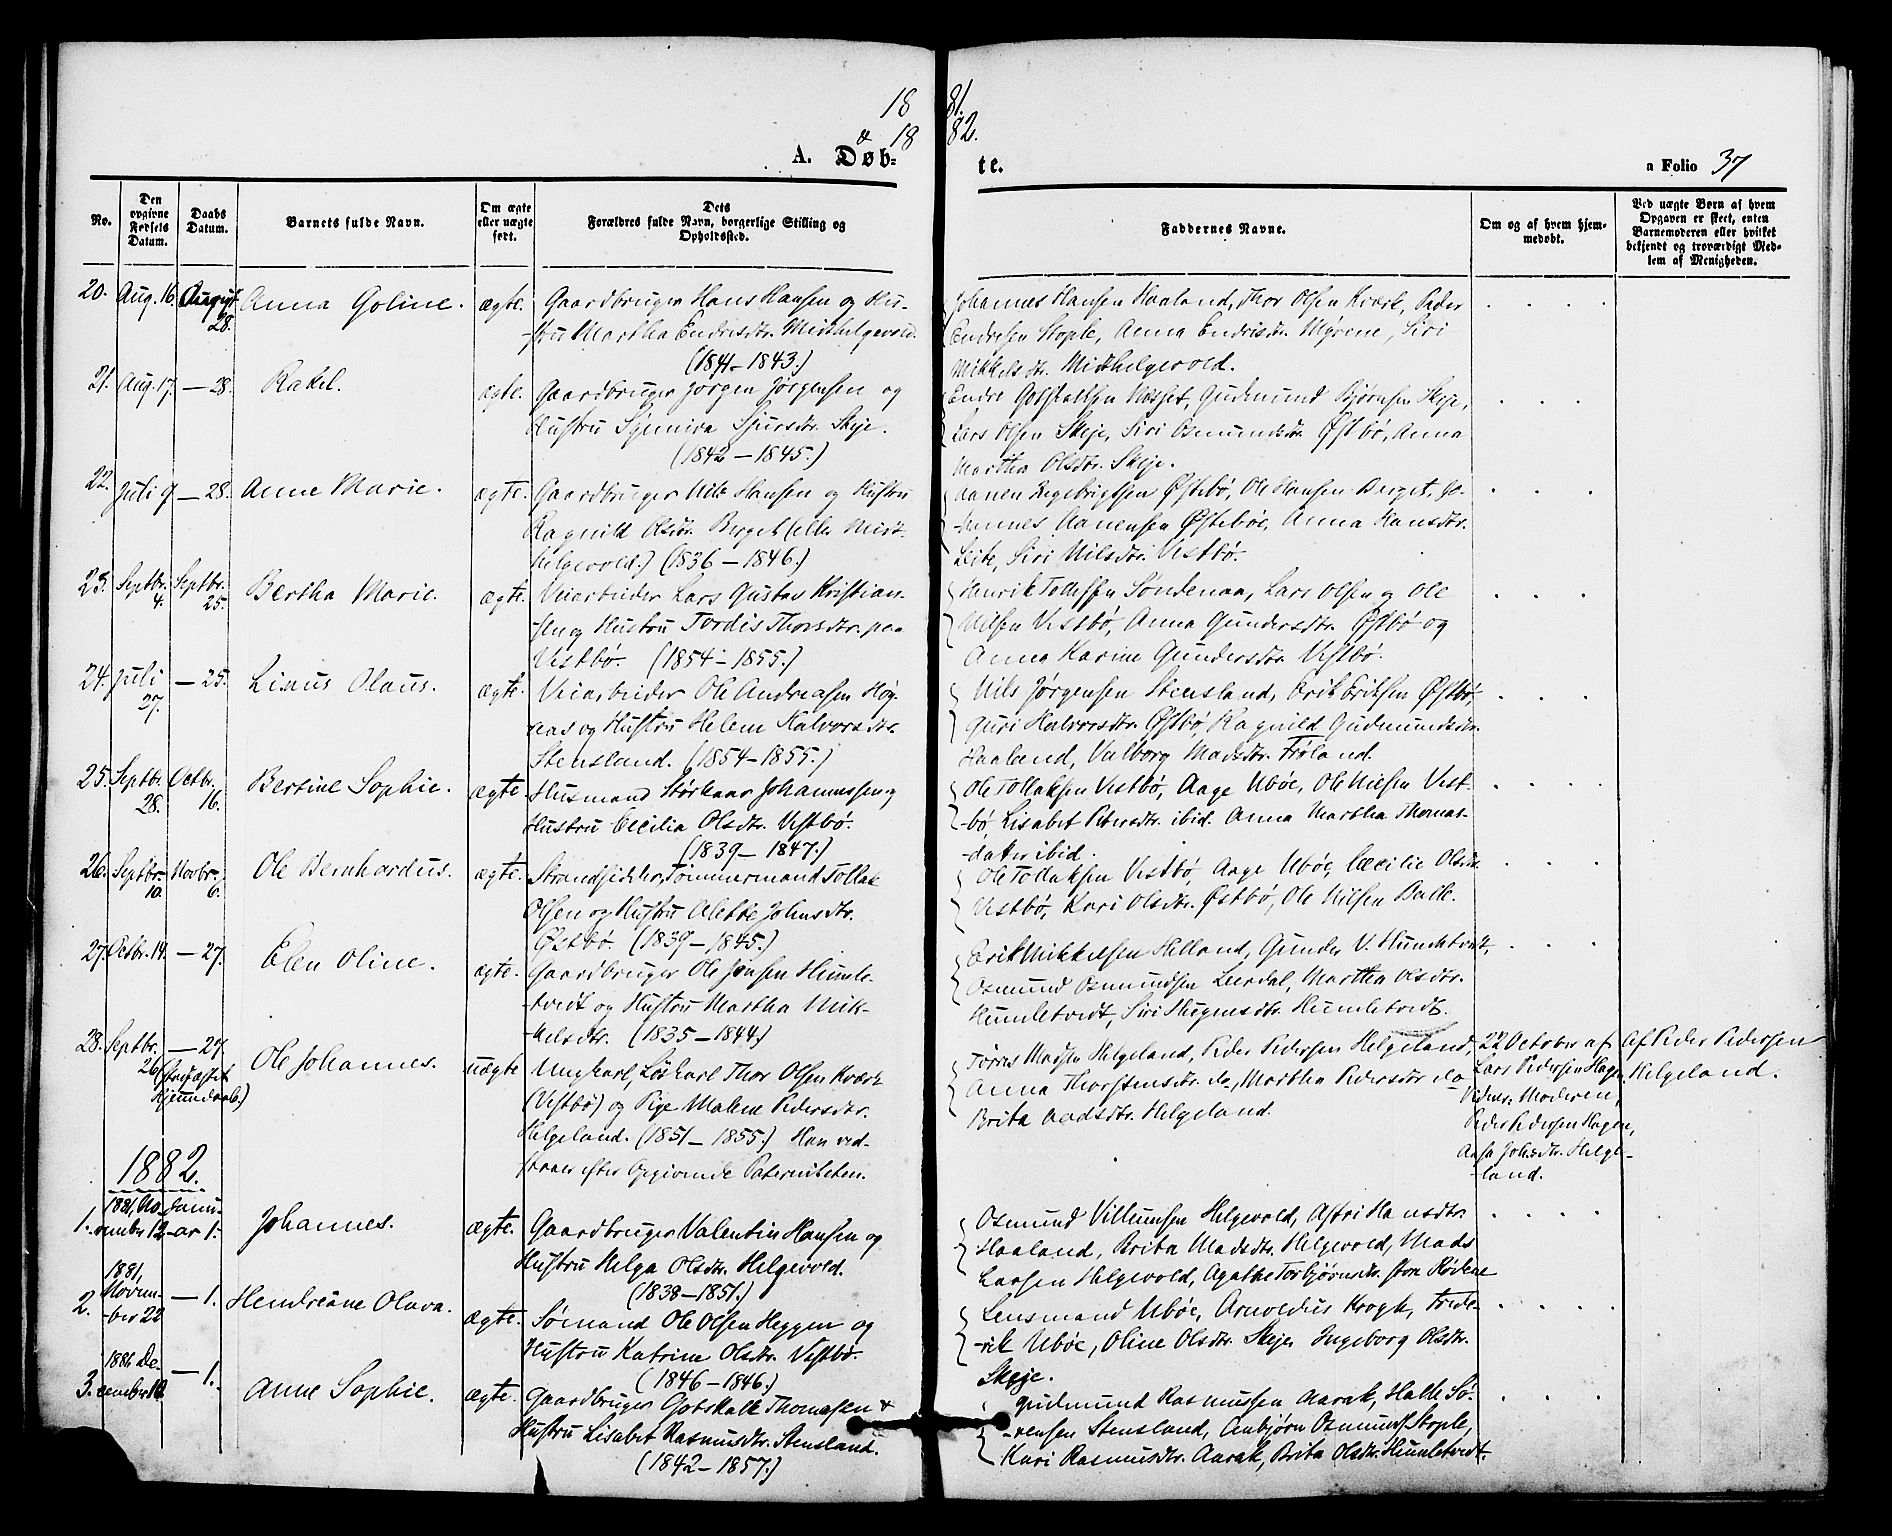 18 81.
& 18 82.
A. Døb- te.
a Folio 37
No.
Den opgivne Fødsels Datum.
Daabs Datum.
Barnets fulde Navn.
Om ægte eller uægte født.
Dets Forældres fulde Navn, borgerlige Stilling og Opholdssted.
Faddernes Navne.
Om og af hvem hjemmedøbt.
Ved uægte Børn af hvem Opgaven er skeet, enten Barnemoderen eller hvilket bekjendt og troværdigt Medlem af Menigheden.
20. Aug. 16 August 28. Anna Goline. ægte. Gaardbruger Hans Hansen og Hu-
stru Martha Endresdtr. Midthelgevold.
(1841-1843.)
Johannes Hansen Haaland, Thor Olsen Kværk, Peder
Endresen Stople, Anna Endrisdtr. Myrene, Siri
Mikkelsdtr. Midthelgevold.
21. Aug. 17. — 28. Rakel. ægte. Gaardbruger Jørgen Jørgensen og
Hustru Synniva Sjursdtr. Skeje.
(1842-1845.)
Endre Gotskalksen Næsset, Gudmund Bjørnsen Skeje,
Lars Olsen Skeje, Siri Osmundsdtr. Østbø, Anna
Martha Olsdtr. Skeje.
22. Juli 9 — 28. Anne Marie. ægte. Gaardbruger Nils Hansen og Hustru
Ragnild Olsdtr. Berget (eller Midt-
helgevold.) (1836-1846.)
Aanen Ingebrigtsen Østebø, Ole Hansen Berget, Jo-
hannes Aanensen Østebøe, Anna Hansdtr.
Leite, Siri Nilsdtr. Vestbø.
23. Septbr. 4. Septbr. 25. Bertha Marie. ægte. Veiarbeider Lars Gustav Kristian-
sen og Hustru Tordis Thorsdtr. paa
Vestbø. (1854-1855.)
Henrik Tollefsen Søndenaa, Lars Olsen og Ole
Nilsen Vestbø, Anna Gundersdtr. Østbø og
Anna Karine Gundersdtr. Vestbø.
24. Juli 27. — 25. Linus Olaus. ægte. Veiarbeider Ole Andreasen Høg-
aas og Hustru Helene Halvorsdtr.
Stensland. (1854-1855.)
Nils Jørgensen Stensland, Erik Eriksen Østbø,
Guri Halvorsdtr. Østbø, Ragnild Gudmundsdtr.
Haaland, Valborg Madsdtr. Frøland.
25. Septbr. 28. Octbr. 16. Bertine Sophie. ægte. Husmand Størkaar Johannessen og
Hustru Cecilia Olsdtr. Vestbø.
(1839-1847.)
Ole Tollaksen Vestbø, Aage Ubøe, Ole Nilsen Vest-
bø, Lisabet Petersdtr. ibid. Anna Martha Thomas-
datter ibid.
26. Septbr. 10. Novbr. 6. Ole Bernhardus. ægte. Strandsidder, Tømmermand Tollak
Olsen og Hustru Alette Johnsdtr.
Østbø. (1839-1845.)
Ole Tollaksen Vestbø, Aage Ubøe, Cæcilie Olsdtr.
Vestbø, Kari Olsdtr. Østbø, Ole Nilsen Bakke.
27. Octbr. 14. — 27. Elen Oline. ægte. Gaardbruger Ole Jonsen Humle-
tvedt og Hustru Martha Mik-
kelsdtr. (1835-1844.)
Erik Mikkelsen Helland, Gunder V. Humletvedt,
Osmund Osmundsen Leirdal, Martha Olsdtr.
Humletvedt, Siri Mognsdtr. Humletvedt.
28. Septbr. 26 — 27 (stadfæstet Hjemmedaab.) Ole Johannes. uægte Ungkarl, Løskarl Thor Olsen Kværk
(Vestbø) og Pige Malene Pedersdtr.
Helgeland. (1851-1855.) Han ved-
staar efter Opgivende Paterniteten.
Tørris Madsen Helgeland, Peder Pedersen Helgeland,
Anna Thorstensdtr. do, Martha Pedersdtr do,
Brita Aadsdtr. Helgeland.
22 October af
Lars Pedersen Hagen,
Vidner: Moderen,
Peder Pedersen Hagen,
Aasa Johsdtr. Helge-
land.
Af Peder Pedersen
Helgeland.
1882.
1. 1881, November 12 Januar 1. Johannes. ægte. Gaardbruger Valentin Hansen og
Hustru Helga Olsdtr. Helgevold.
(1838-1851.)
Osmund Villumsen Helgevold, Astri Hansdtr.
Haaland, Brita Madsdtr. Helgevold, Mads
Larsen Helgevold, Agathe Torbjørnsdtr. store Rødene
2. 1881, November 22 — 1. Hendreane Olava. ægte. Sømand Ole Olsen Heggen og
Hustru Katrine Olsdtr. Vestbø.
(1846-1846.)
Lensmand Ubøe, Arnoldus Krogh, Frede-
rik Ubøe, Oline Olsdtr. Skeje, Ingeborg Olsdtr.
Skeje.
3. 1881 December 10 — 1. Anne Sophie. ægte. Gaardbruger Gotskalk Thomasen &
Hustru Lisabet Rasmusdtr. Stensland.
(1842-1857.)
Gudmund Rasmussen Aarak, Halle Sø-
rensen Stensland, Anbjørn Osmunds. Stople,
Kari Rasmusdtr. Aarak, Brita Olsdtr. Humletvedt.